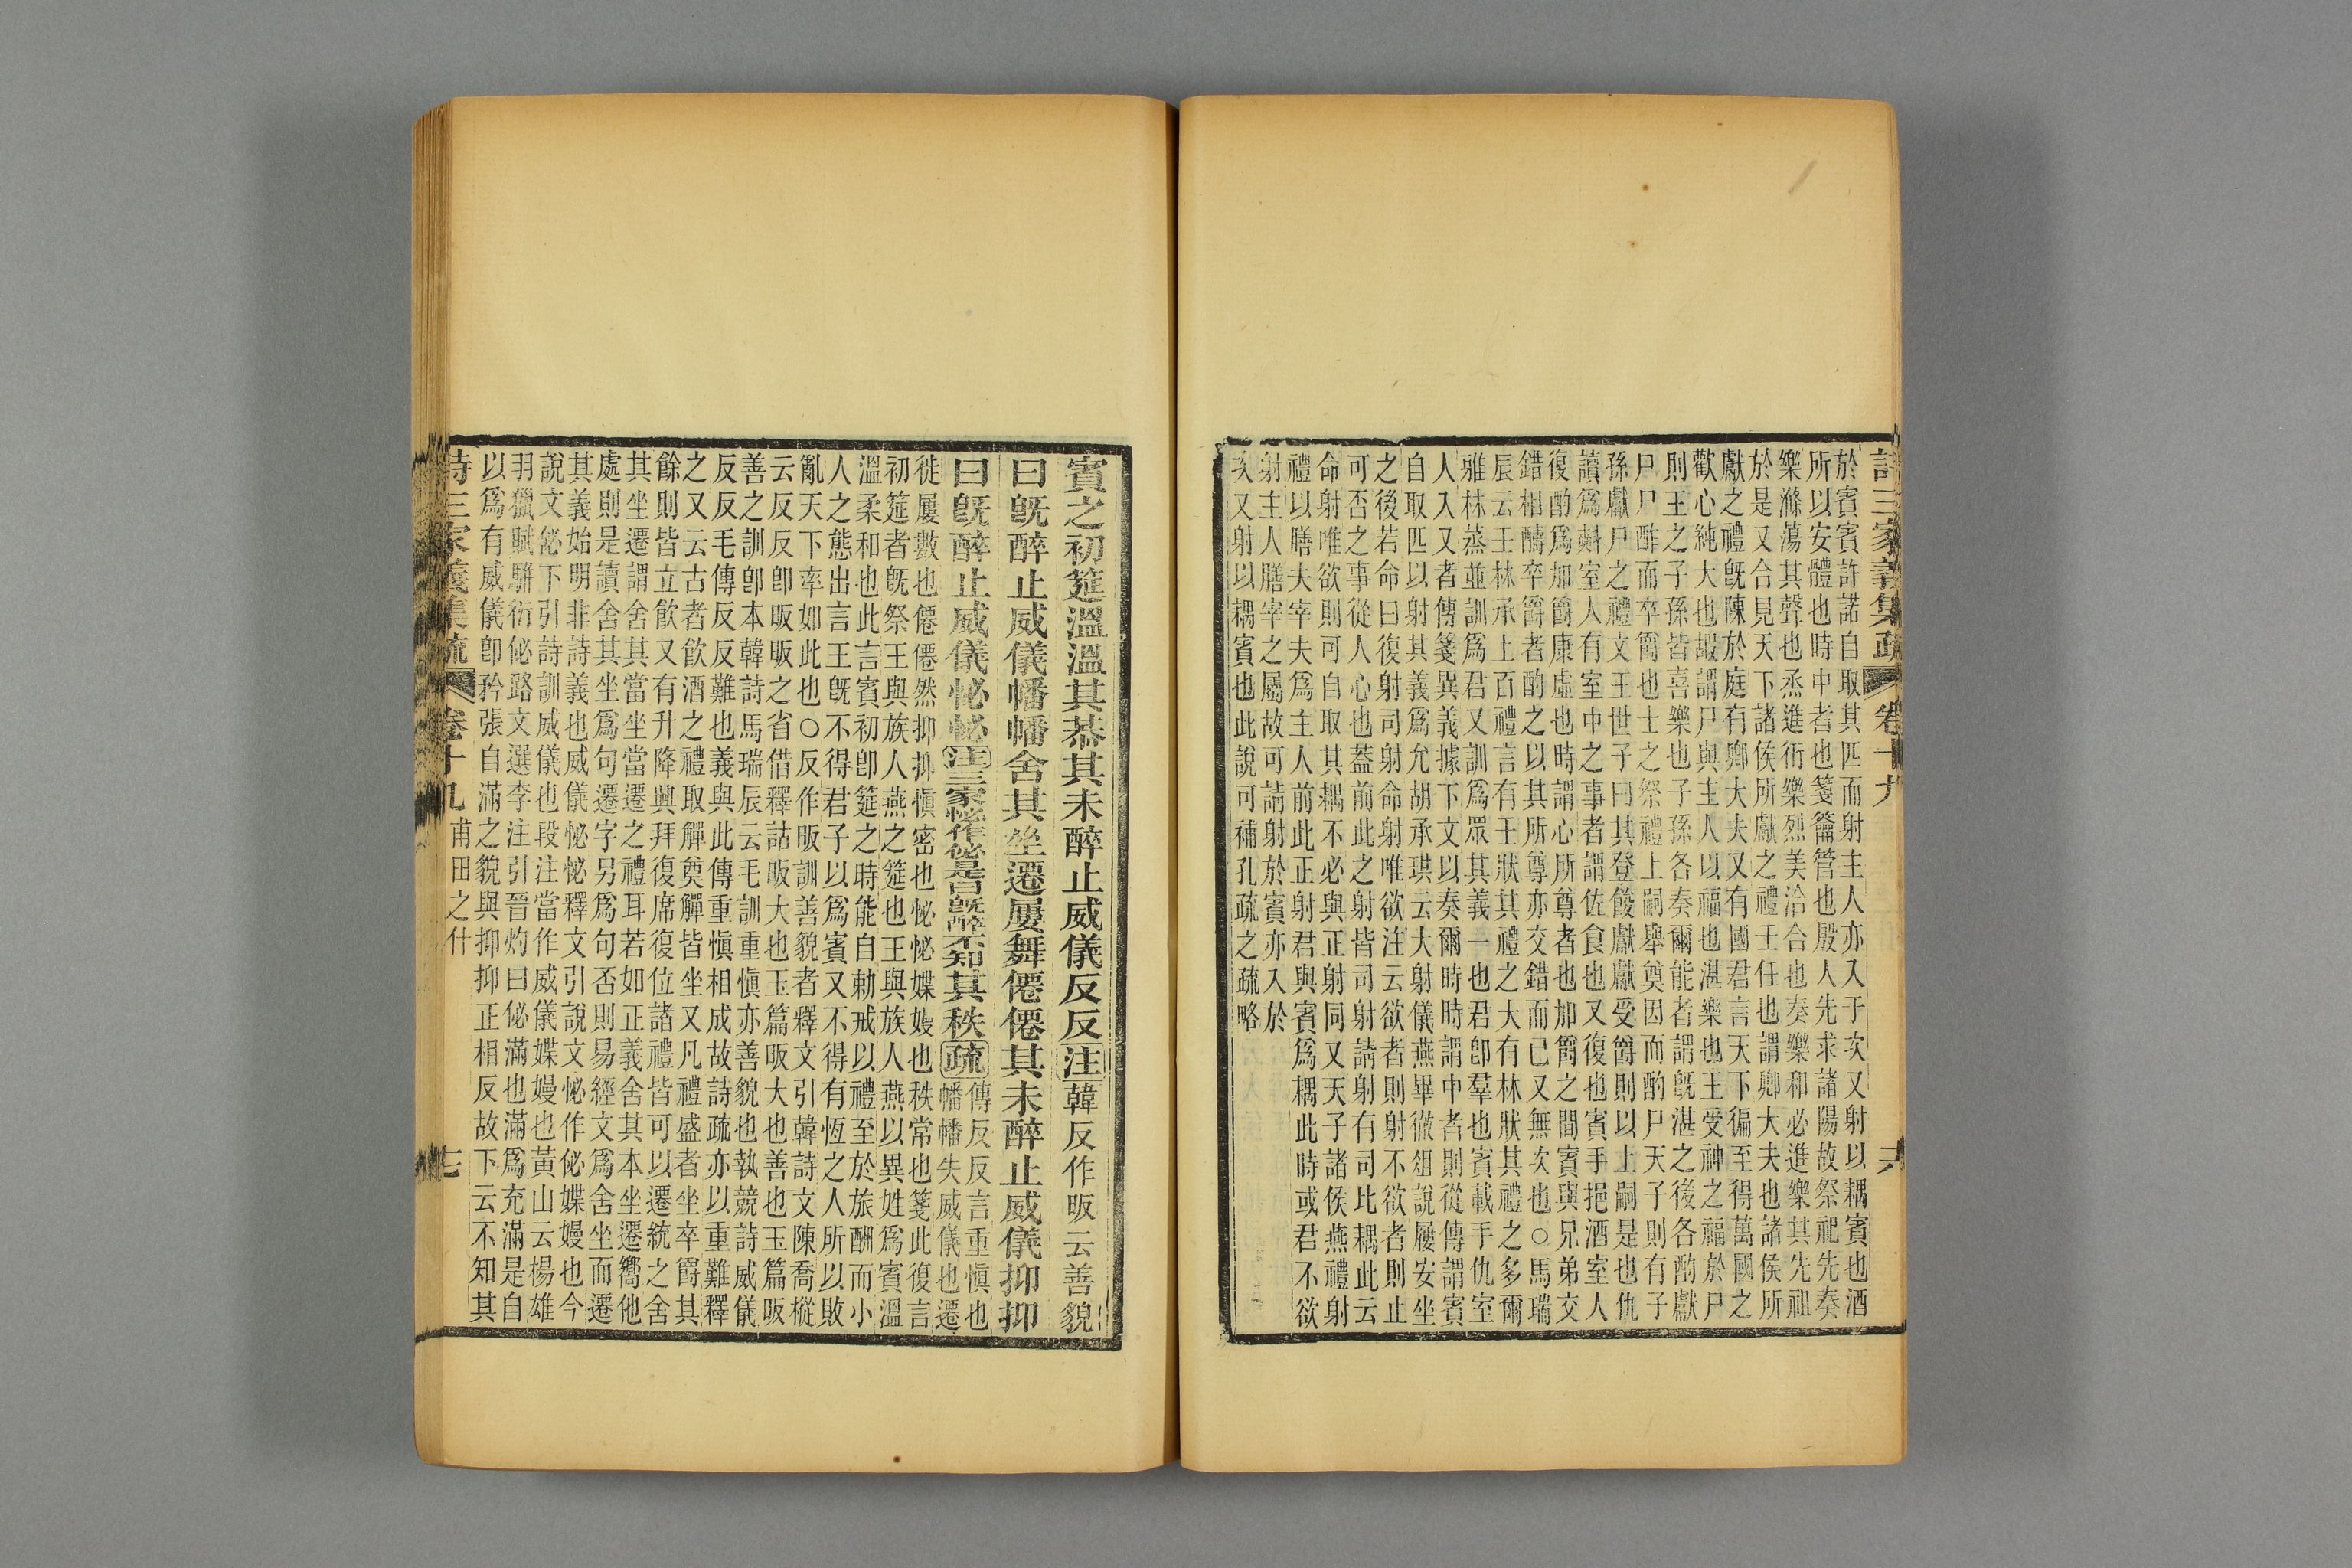 詩三家義集疏　卷十九　十六
於賓賓許諾自取其匹而射主人亦入于次又射以耦賓也酒
所以安體也時中者也箋籥管也殷人先求諸陽故祭祀先奏
樂滌蕩其聲也烝進衎樂烈美洽合也奏樂和必進樂其先祖
於是又合見天下諸侯所獻之禮壬任也謂卿大夫也諸侯所
獻之禮旣陳於庭有卿大夫又有國君言天下徧至得萬國之
歡心純大也嘏謂尸與主人以福也湛樂也王受神之福於尸
則王之子孫皆喜樂也子孫各奏爾能者謂旣湛之後各酌獻
尸尸酢而卒爵也士之祭禮上嗣舉奠因而酌尸天子則有子
孫獻尸之禮文王世子曰其登餕獻獻受爵則以上嗣是也仇
讀爲㪺室人有室中之事者謂佐食也又復也賓手挹酒室人
復酌爲加爵康虛也時謂心所尊者也加爵之間賓與兄弟交
錯相醻卒爵者酌之以其所尊亦交錯而已又無次也○馬瑞
辰云王林承上百禮言有壬狀其禮之大有林狀其禮之多爾
雅林蒸並訓爲君又訓爲眾其義一也君卽羣也賓載手仇室
人入又者傳箋異義據下文以奏爾時時謂中者則從傳謂賓
自取匹以射其義爲允胡承珙云大射儀燕畢徹俎說屨安坐
之後若命曰復射司射命射唯欲注云欲者則射不欲者則止
可否之事從人心也蓋前此之射皆司射請射有司比耦此云
命射唯欲則可自取其耦不必與正射同又天子諸侯燕禮射
禮以膳夫宰夫爲主人前此正射君與賓爲耦此時或君不欲
射主人膳宰之屬故可請射於賓亦入於
次又射以耦賓也此說可補孔疏之疏略
賓之初筵溫溫其恭其未醉止威儀反反注韓反作昄云善貌
曰旣醉止威儀幡幡舍其坐遷屢舞僊僊其未醉止威儀抑抑
曰旣醉止威儀怭怭注三家怭作佖是曰旣醉不知其秩疏傳反反言重愼也
幡幡失威儀也遷
徙屢數也僊僊然抑抑愼密也怭怭媟嫚也秩常也箋此復言
初筵者旣祭王與族人燕之筵也王與族人燕以異姓爲賓溫
溫柔和也此言賓初卽筵之時能自勅戒以禮至於旅酬而小
人之態出言王旣不得君子以爲賓又不得有恆之人所以敗
亂天下率如此也○反作昄訓善貌者釋文引韓詩文陳喬樅
云反反卽昄昄之省借釋詁昄大也玉篇昄大也善也玉篇昄
善之訓卽本韓詩馬瑞辰云毛訓重愼亦善貌也執競詩威儀
反反毛傳反反難也義與此傳重愼相成故詩疏亦以重難釋
之又云古者飲酒之禮取觶奠觶皆坐又凡禮盛者坐卒爵其
餘則皆立飲又有升降興拜復席復位諸禮皆可以遷統之舍
其坐遷謂舍其當坐當遷之禮耳若如正義舍其本坐遷嚮他
處則是讀舍其坐爲句遷字另爲句否則易經文爲舍坐而遷
其義始明非詩義也威儀怭怭釋文引說文怭作佖媟嫚也今
說文佖下引詩訓威儀也段注當作威儀媟嫚也黃山云楊雄
羽獵賦駢衍佖路文選李注引晉灼曰佖滿也滿爲充滿是自
以爲有威儀卽矜張自滿之貌與抑抑正相反故下云不知其
詩三家義集疏　卷十九　甫田之什　十七